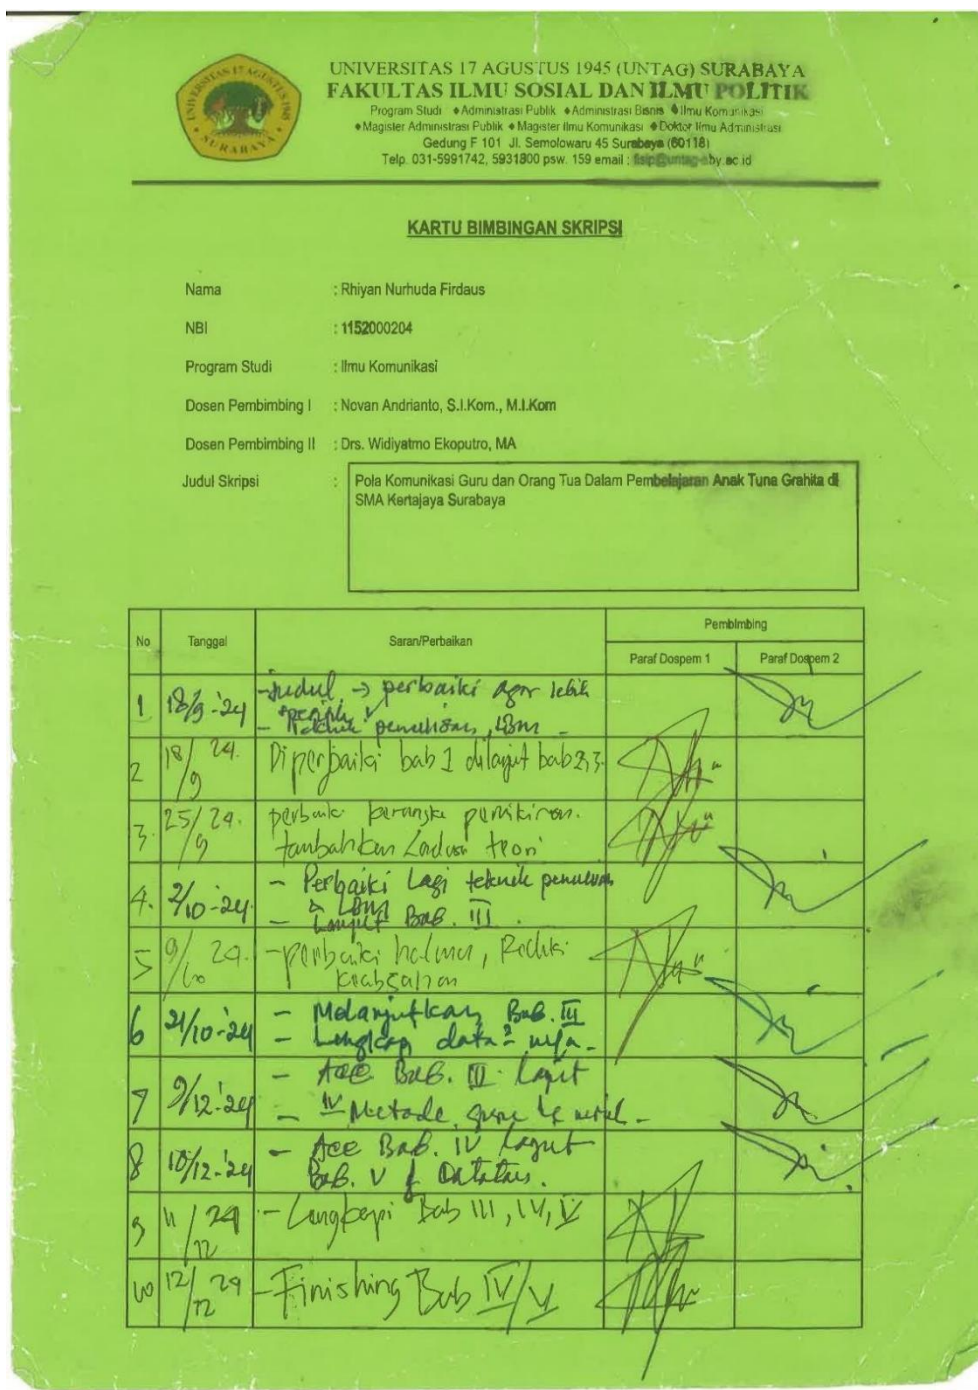 UNIVERSITAS 17 AGUSTUS 1945
SURABAYA
UNIVERSITAS 17 AGUSTUS 1945 (UNTAG) SURABAYA
FAKULTAS ILMU SOSIAL DAN ILMU POLITIK
Program Studi ◆Administrasi Publik ◆Administrasi Bisnis ◆Ilmu Komunikasi
◆Magister Administrasi Publik ◆Magister Ilmu Komunikasi ◆Doktor Ilmu Administrasi
Gedung F 101 Jl. Semolowaru 45 Surabaya (60118)
Telp. 031-5991742, 5931800 psw. 159 email : fisip@untag-sby.ac.id
KARTU BIMBINGAN SKRIPSI
Nama : Rhiyan Nurhuda Firdaus
NBI : 1152000204
Program Studi : Ilmu Komunikasi
Dosen Pembimbing I : Novan Andrianto, S.I.Kom., M.I.Kom
Dosen Pembimbing II : Drs. Widiyatmo Ekoputro, MA
Judul Skripsi : Pola Komunikasi Guru dan Orang Tua Dalam Pembelajaran Anak Tuna Grahita di
SMA Kertajaya Surabaya
No Tanggal Saran/Perbaikan Pembimbing
Paraf Dospem 1 Paraf Dospem 2
1 18/9-'24 - Judul → perbaiki agar lebih
- penulisan, LBM -
2 18/9 24. Diperbaiki bab 1 dilanjut bab 2,3.
3. 25/9 24. perbaiki kerangka pemikiran.
tambahkan Landasan teori
4. 2/10-'24. - Perbaiki Lagi teknik penulisan
& LBM
- Lanjut Bab. III.
5 9/10 24. - perbaiki halaman,
keabsahan
6 21/10-'24 - Melanjutkan Bab. III
- Lengkapi data²
7 9/12-'24 - Acc Bab. III lanjut
IV Metode
8 10/12-'24 - Acc Bab. IV lanjut
Bab. V &
9 11/12 24 - Lengkapi Bab III, IV, V
10 12/12 24 - Finishing Bab IV/V